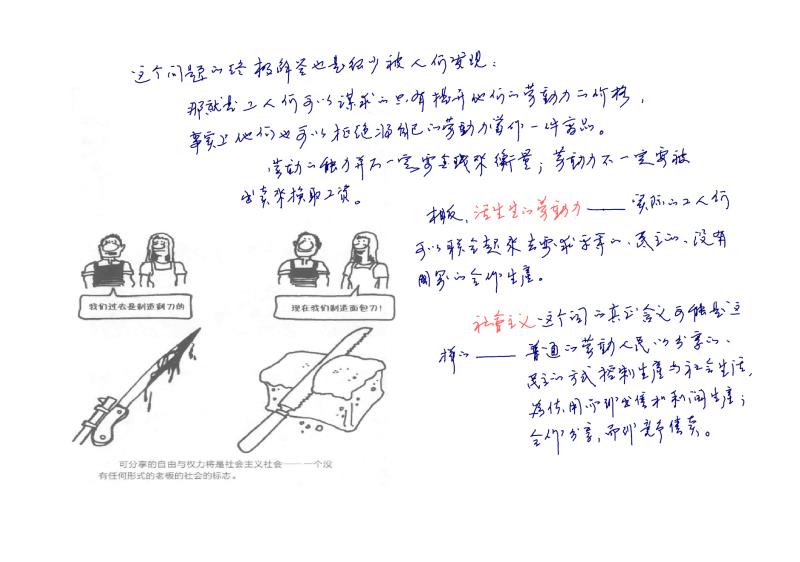 这个问题的终极解答也是很少被人们发现：
那就是工人们可以谋求的只有提升他们的劳动力的价格，
事实上他们也可以拒绝将自己的劳动力当作一件商品。
劳动的能力并不一定要金钱来衡量；劳动力不一定要被
出卖来换取工资。
相反，活生生的劳动力——实际的工人们
可以联合起来去要求共享的、民主的、没有
国家的合作生产。
社会主义 这个词的真正含义可能是这
样的——普通的劳动人民以分享的、
民主的方式控制生产与社会生活，
为使用而非出售和利润生产；
合作分享，而非竞争售卖。
我们过去是制造剃刀的
现在我们制造面包刀！
可分享的自由与权力将是社会主义社会——一个没
有任何形式的老板的社会的标志。